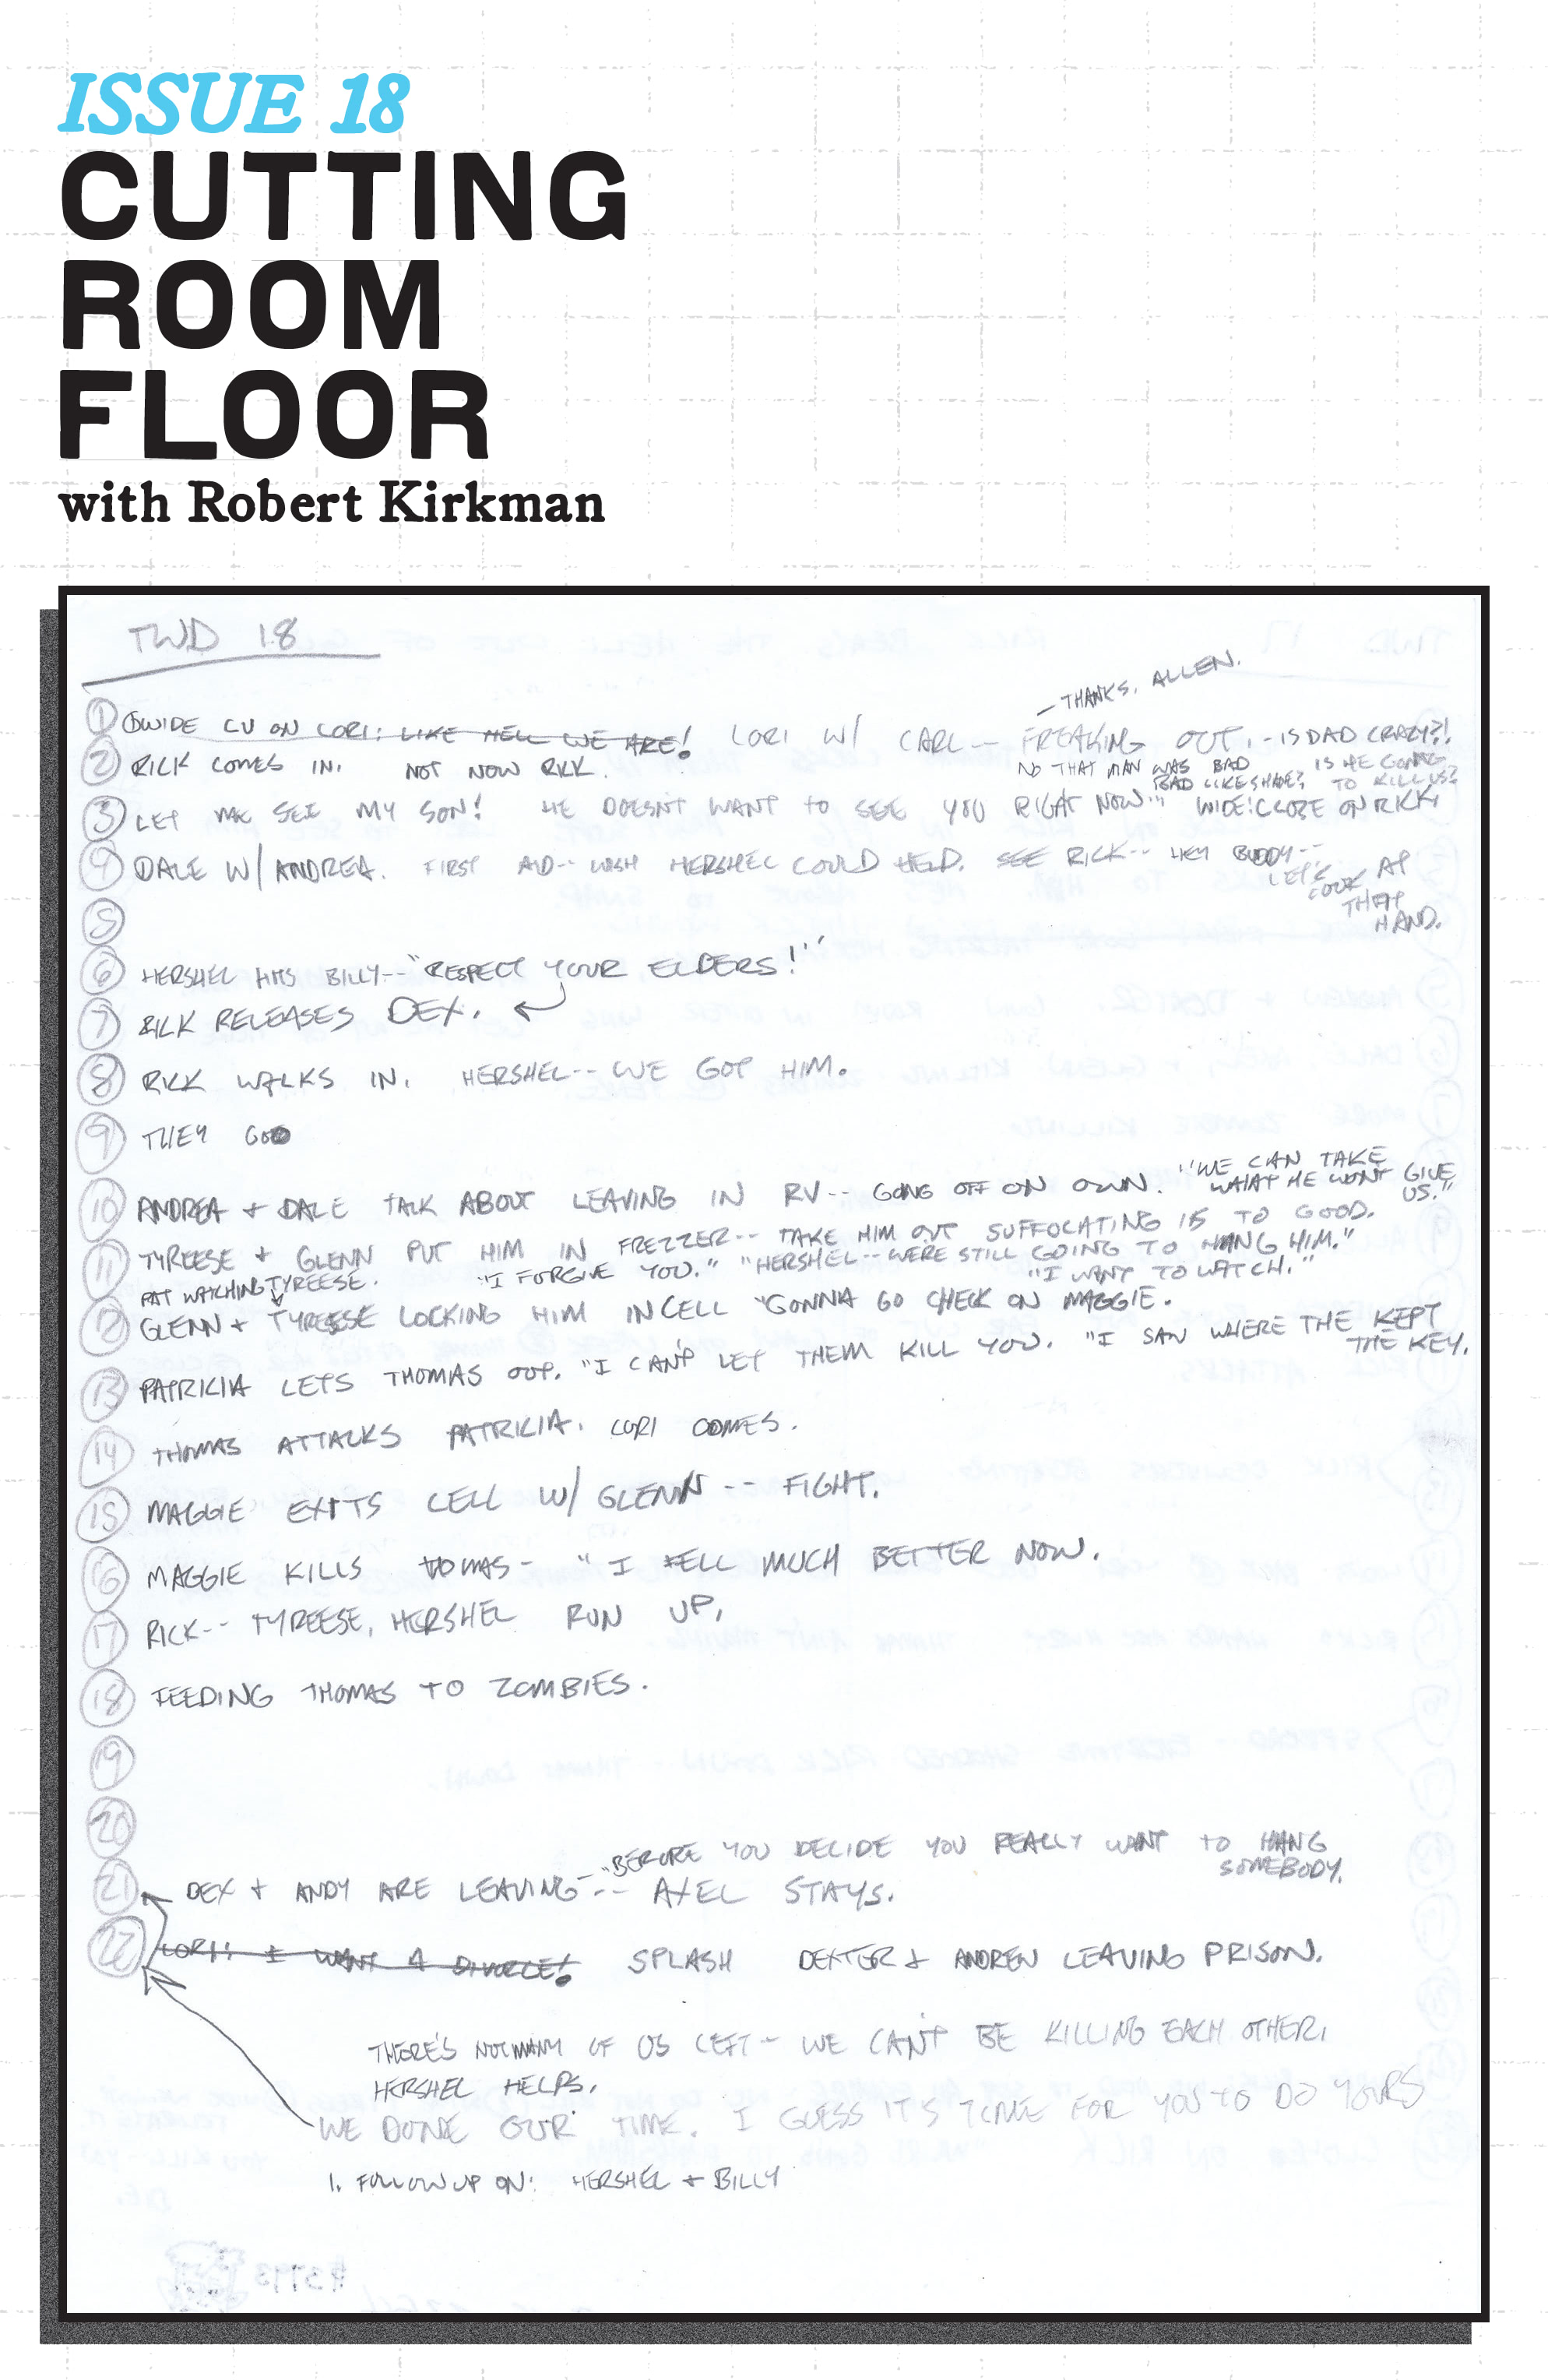 ISSUE 18
CUTTING
ROOM
FLOOR
with Robert Kirkman
TWD 18
– THANKS, ALLEN.
① WIDE CU ON LORI: LIKE HELL WE ARE! LORI W/ CARL -- FREAKING OUT. - IS DAD CRAZY?!
NO THAT MAN WAS BAD IS HE GOING
BAD LIKE SHANE? TO KILL US?
② RICK COMES IN. NOT NOW RICK.
③ LET ME SEE MY SON! HE DOESN'T WANT TO SEE YOU RIGHT NOW" WIDE: CLOSE ON RICK
④ DALE W/ ANDREA. FIRST AID -- WISH HERSHEL COULD HELD. SEE RICK -- HEY BUDDY --
LET'S
LOOK AT
THAT
HAND.
⑤
⑥ HERSHEL HITS BILLY -- "RESPECT YOUR ELDERS!"
⑦ RICK RELEASES DEX.
⑧ RICK WALKS IN. HERSHEL -- WE GOT HIM.
⑨ THEY GO
"WE CAN TAKE
WHAT HE WON'T GIVE
US."
⑩ ANDREA + DALE TALK ABOUT LEAVING IN RV -- GOING OFF ON OWN.
⑪ TYREESE + GLENN PUT HIM IN FREZZER -- TAKE HIM OUT SUFFOCATING IS TO GOOD.
"I FORGIVE YOU." "HERSHEL -- WERE STILL GOING TO HANG HIM."
PAT WATCHING TYREESE. "I WANT TO WATCH."
⑫ GLENN + TYREESE LOCKING HIM IN CELL "GONNA GO CHECK ON MAGGIE.
⑬ PATRICIA LETS THOMAS OUT. "I CAN'T LET THEM KILL YOU. "I SAW WHERE THE KEPT
THE KEY.
⑭ THOMAS ATTACKS PATRICIA. LORI COMES.
⑮ MAGGIE EXITS CELL W/ GLENN -- FIGHT.
⑯ MAGGIE KILLS TOMAS - "I FELL MUCH BETTER NOW.
⑰ RICK -- TYREESE, HERSHEL RUN UP,
⑱ FEEDING THOMAS TO ZOMBIES.
⑲
⑳
"BEFORE YOU DECIDE YOU REALLY WANT TO HANG
SOMEBODY.
㉑ DEX + ANDY ARE LEAVING -- AXEL STAYS.
㉒ LORI: I WANT A DIVORCE! SPLASH DEXTER + ANDREW LEAVING PRISON.
THERE'S NOT MANY OF US LEFT - WE CAN'T BE KILLING EACH OTHER,
HERSHEL HELPS.
WE DONE OUR TIME. I GUESS IT'S TIME FOR YOU TO DO YOURS
1. FOLLOW UP ON: HERSHEL + BILLY